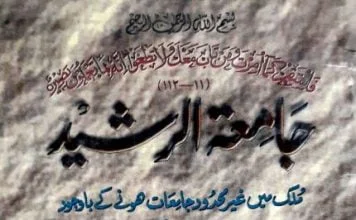 بسم الله الرحمن الرحیم
فاستقم كما امرت ومن تاب معك ولا تطغوا انه بما تعملون بصیر
(۱۱—۱۱۲)
جامعة الرشید
ملک میں غیر محدود جامعات ہونے کے باوجود